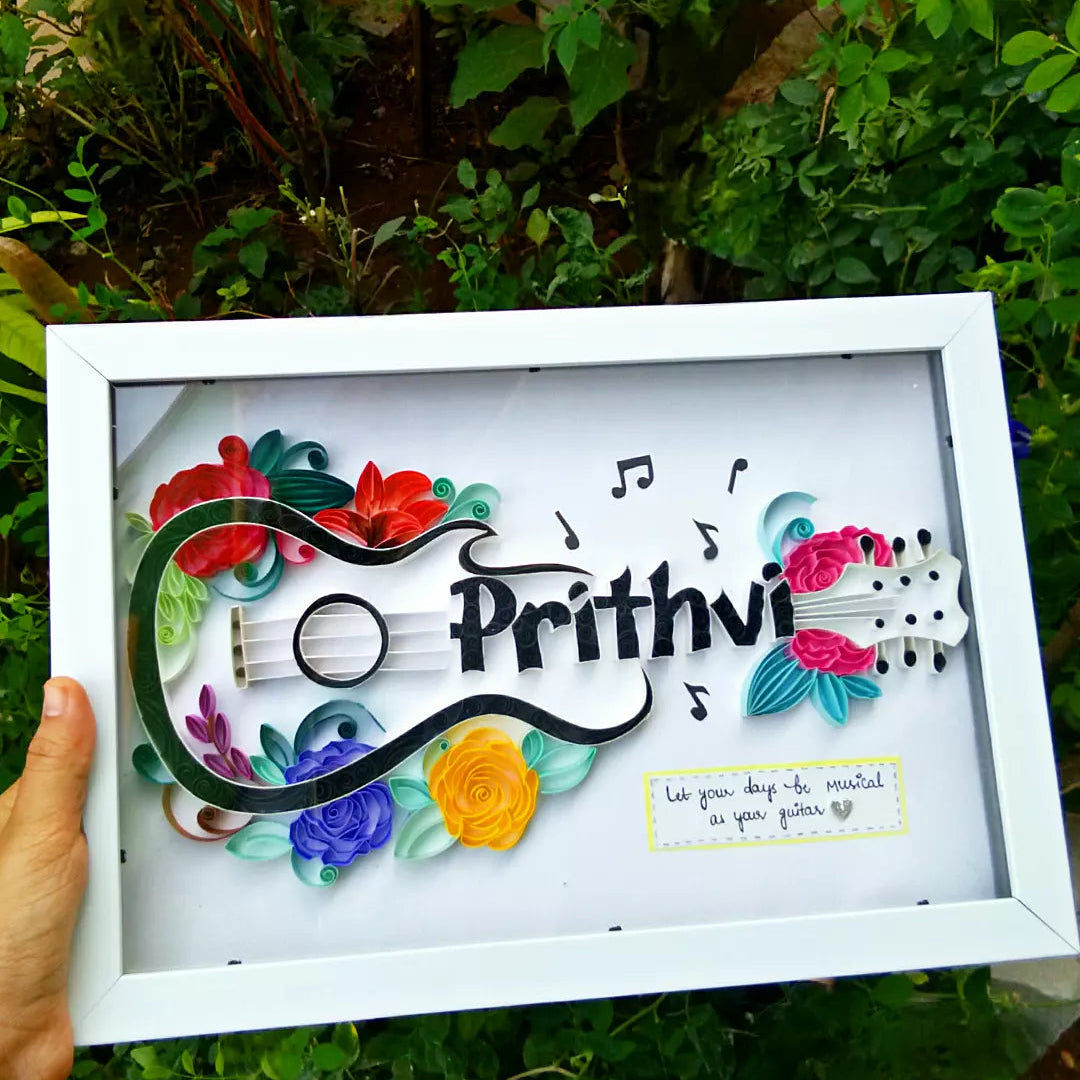 Prithvi
Let your days be musical
as your guitar